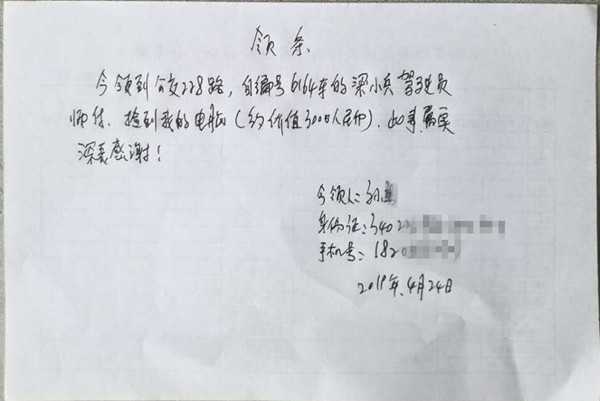 领条
今领到公交228路，自编号6164车的梁小兵驾驶员
师付、捡到我的电脑（约价值3000人民币）、此事属实
深表感谢！
今领人：孙
身份证：3402
手机号：1820
2019年4月24日